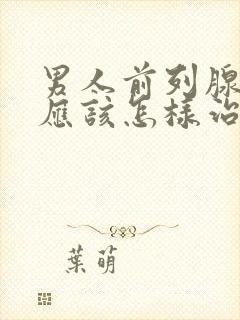 男人前列腺
應該怎樣治
葉萌